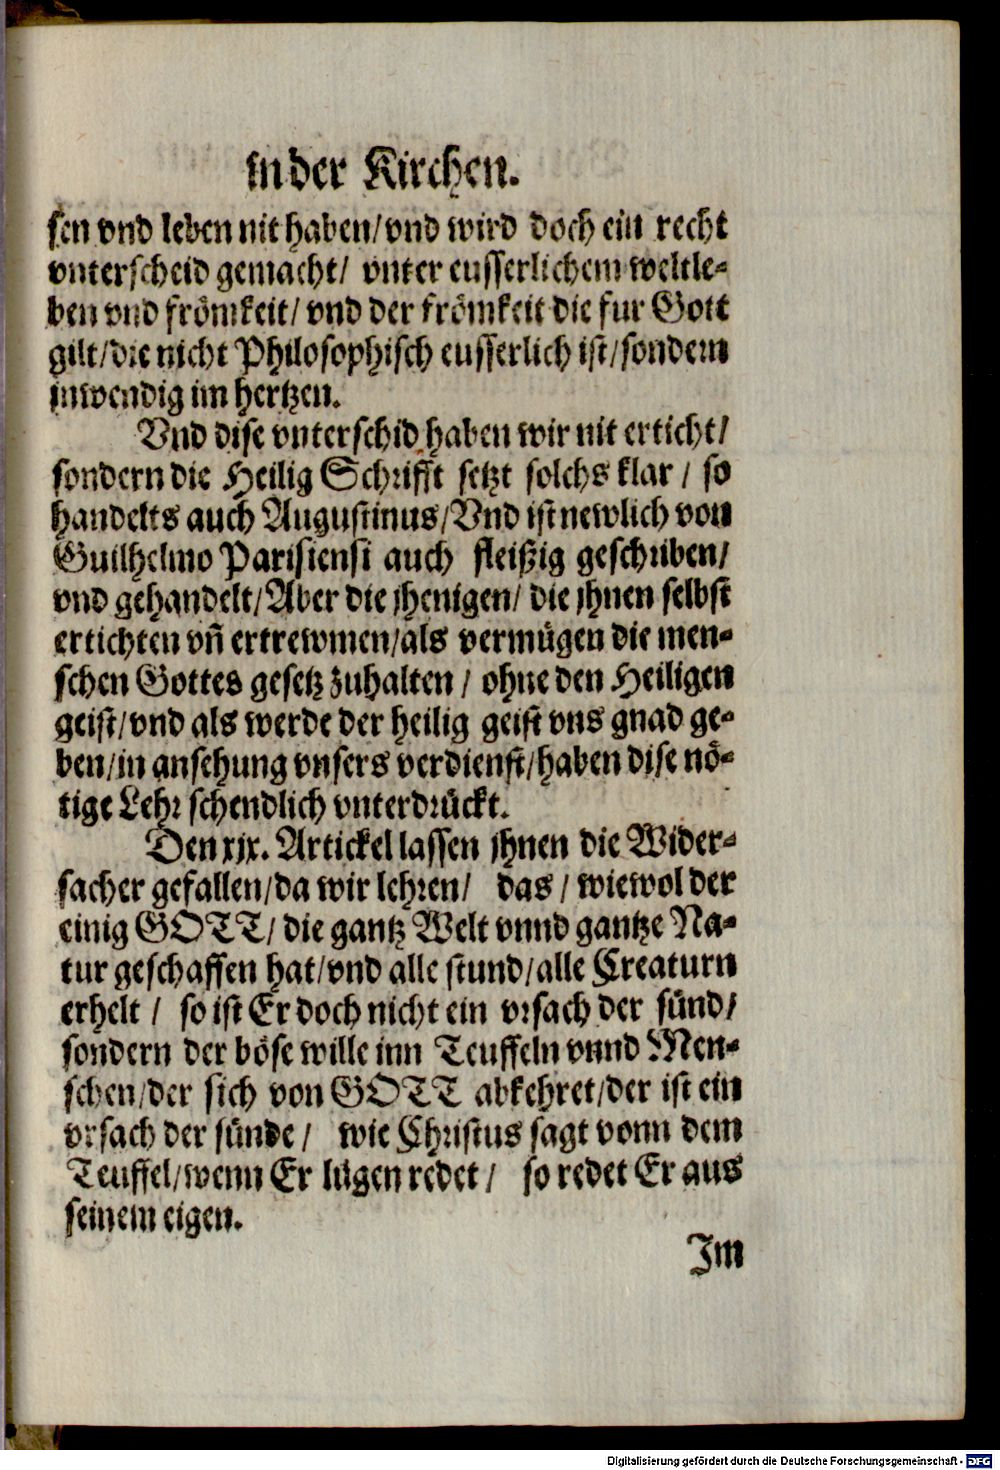 in der Kirchen.
sen vnd leben nit haben/vnd wird doch ein recht
vnterscheid gemacht/ vnter eusserlichem weltle-
ben vnd frömkeit/ vnd der frömkeit die fur Gott
gilt/die nicht Philosophisch eusserlich ist/sondern
inwendig im hertzen.
Vnd dise vnterschid haben wir nit erticht/
sondern die Heilig Schrifft setzt solchs klar / so
handelts auch Augustinus/Vnd ist newlich von
Guilhelmo Parisiensi auch fleißig geschriben/
vnd gehandelt/Aber die jhenigen/ die jhnen selbst
ertichten vñ ertrewmen/als vermügen die men-
schen Gottes gesetz zuhalten / ohne den Heiligen
geist/vnd als werde der heilig geist vns gnad ge-
ben/in ansehung vnsers verdienst/haben dise nö-
tige Lehr schendlich vnterdrückt.
Den xjx. Artickel lassen jhnen die Wider-
sacher gefallen/da wir lehren/ das / wiewol der
einig GOTT/ die gantz Welt vnnd gantze Na-
tur geschaffen hat/vnd alle stund/alle Creaturn
erhelt / so ist Er doch nicht ein vrsach der sünd/
sondern der böse wille inn Teuffeln vnnd Men-
schen/der sich von GOTT abkehret/der ist ein
vrsach der sünde / wie Christus sagt vonn dem
Teuffel/wenn Er lügen redet / so redet Er aus
seinem eigen.
Im
Digitalisierung gefördert durch die Deutsche Forschungsgemeinschaft - DFG